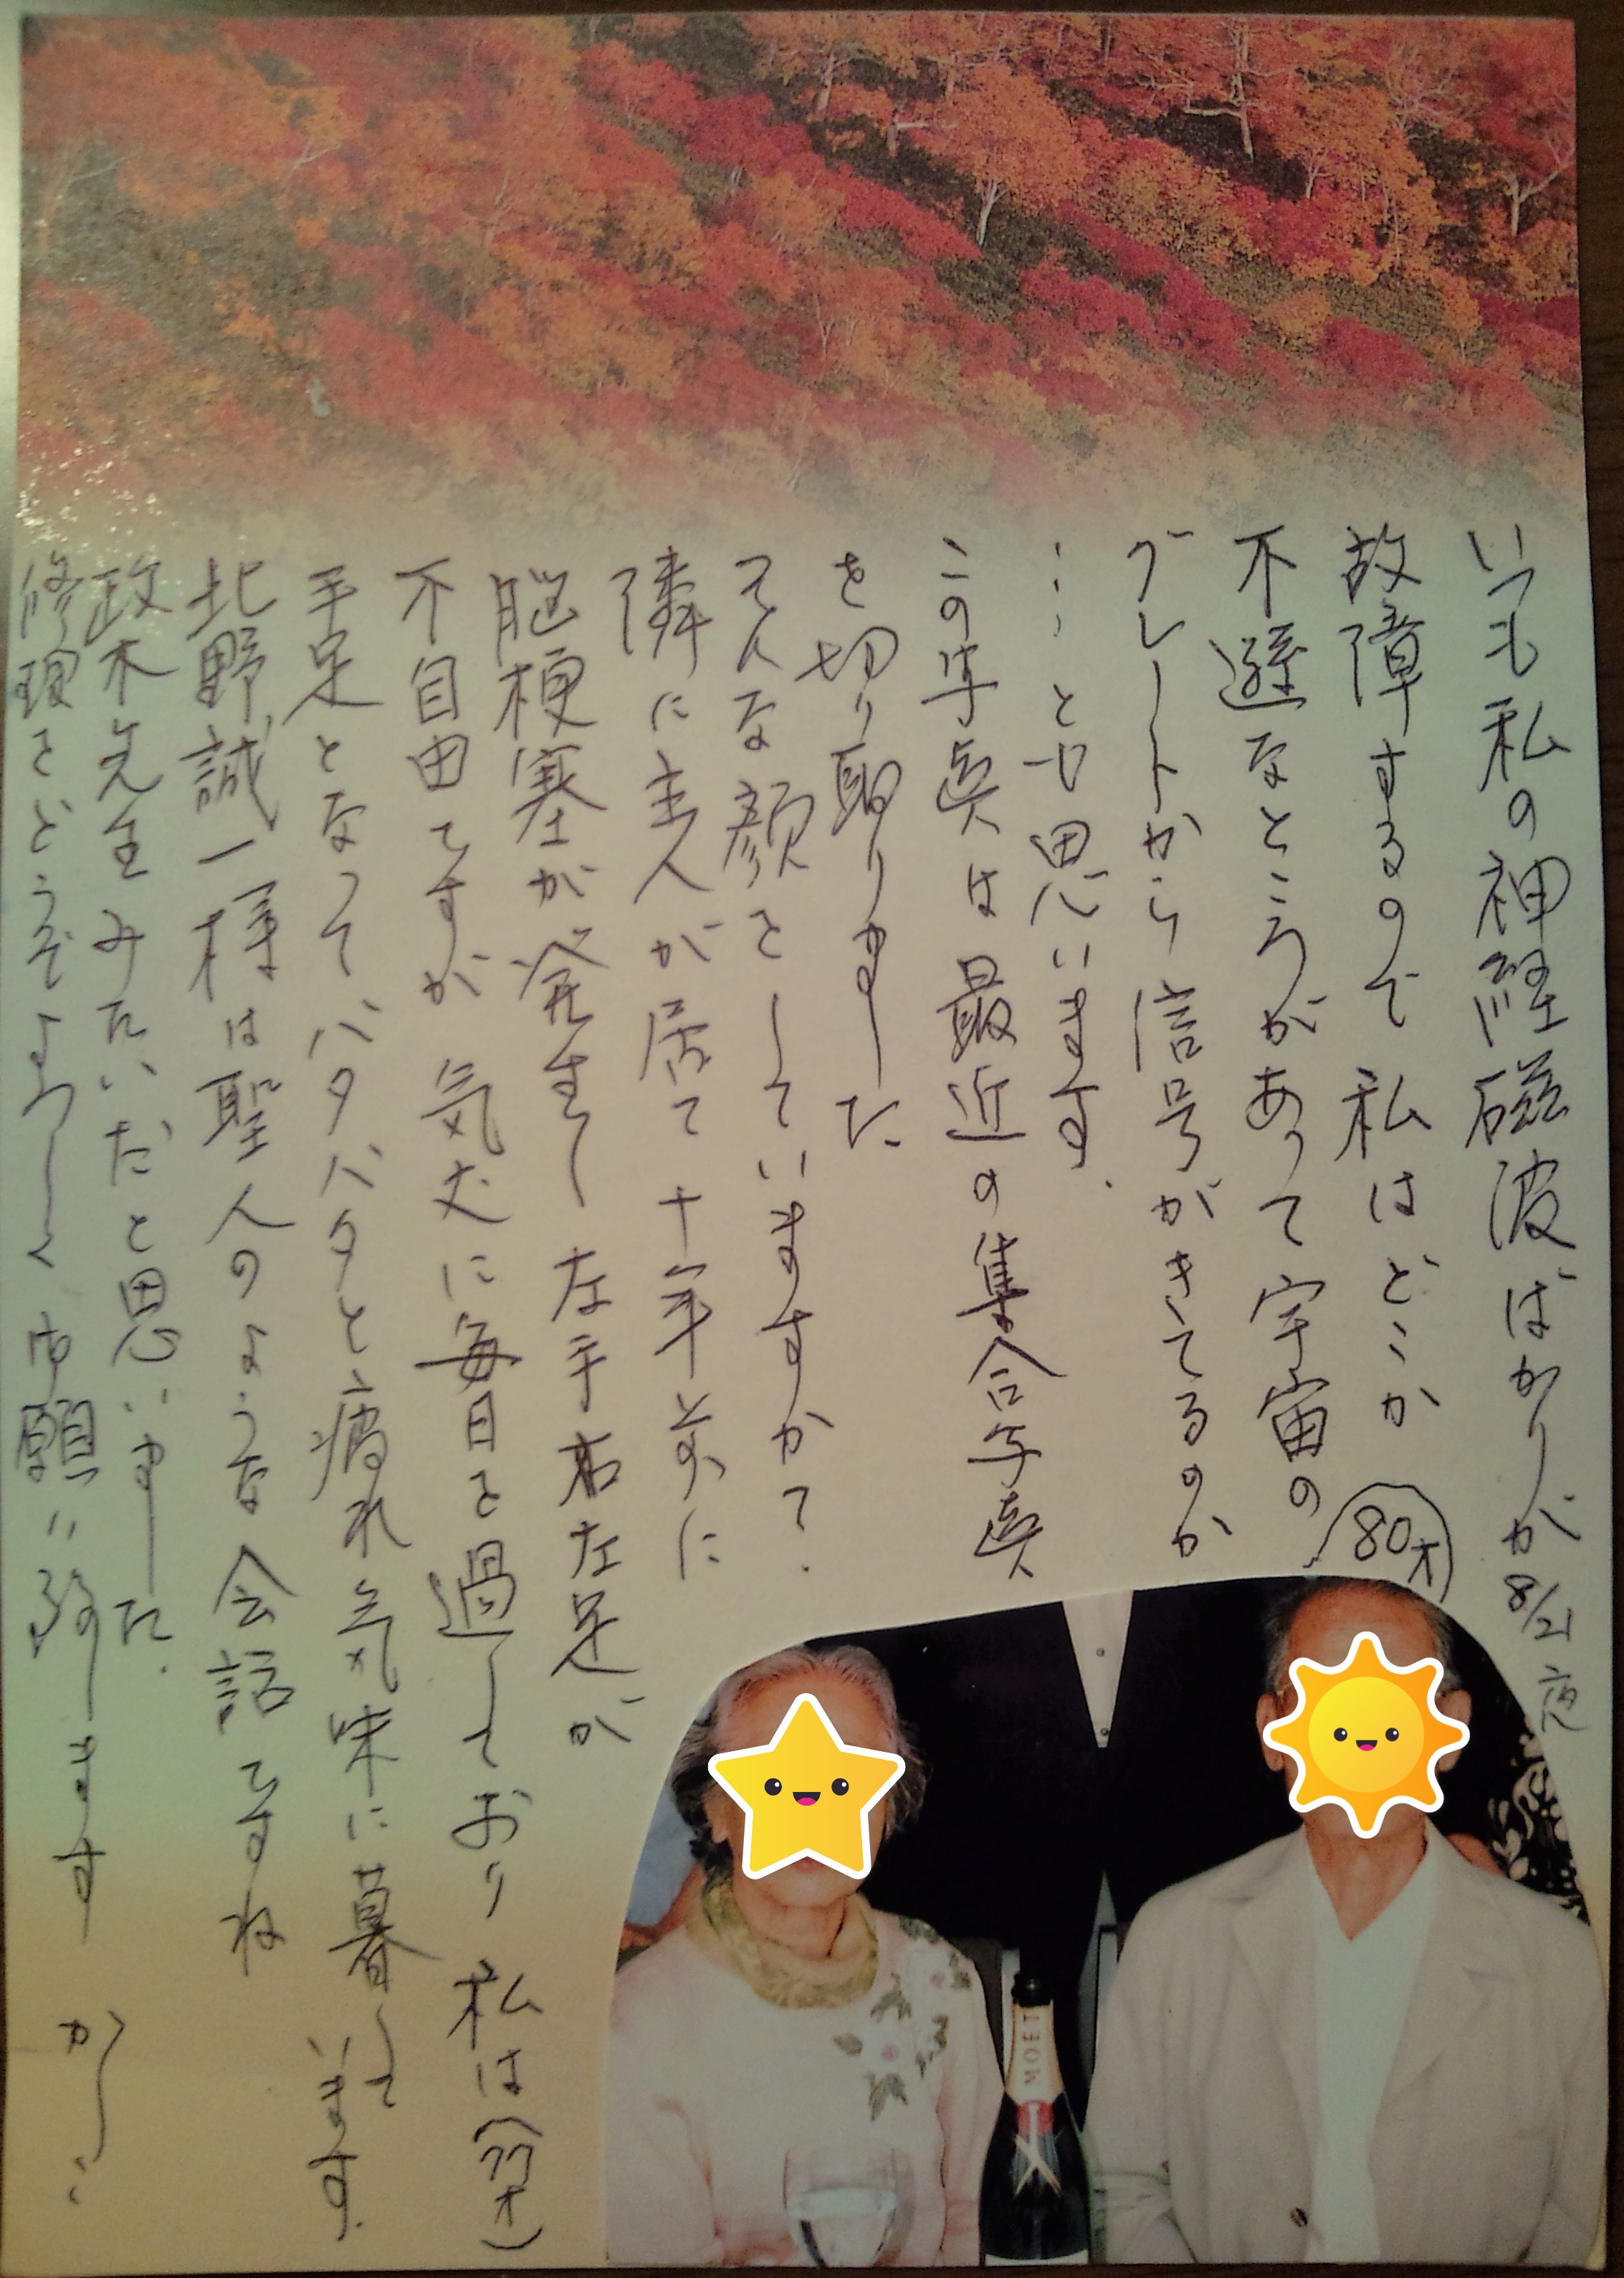 いつも私の神経磁波ばかりが 8/21 夜
故障するので 私はどこか
不避なところがあって 宇宙の
グレートから信号がきてるのか
… とも思います.
この写真は最近の集合写真
を切り取りました
てんな顔をしていますすかて?
隣に主人が居て 十年前に
脳梗塞が発生し 左手右左足が
不自由ですが 気丈に毎日を過しており 私は(77才)
手足となってバタバタと疲れ気味に暮して
います.
北野誠一様は聖人のような会話ですね
政木先生みたいだと思いました.
修理をどうぞよろしく御願い致します かしこ
80才
MOET